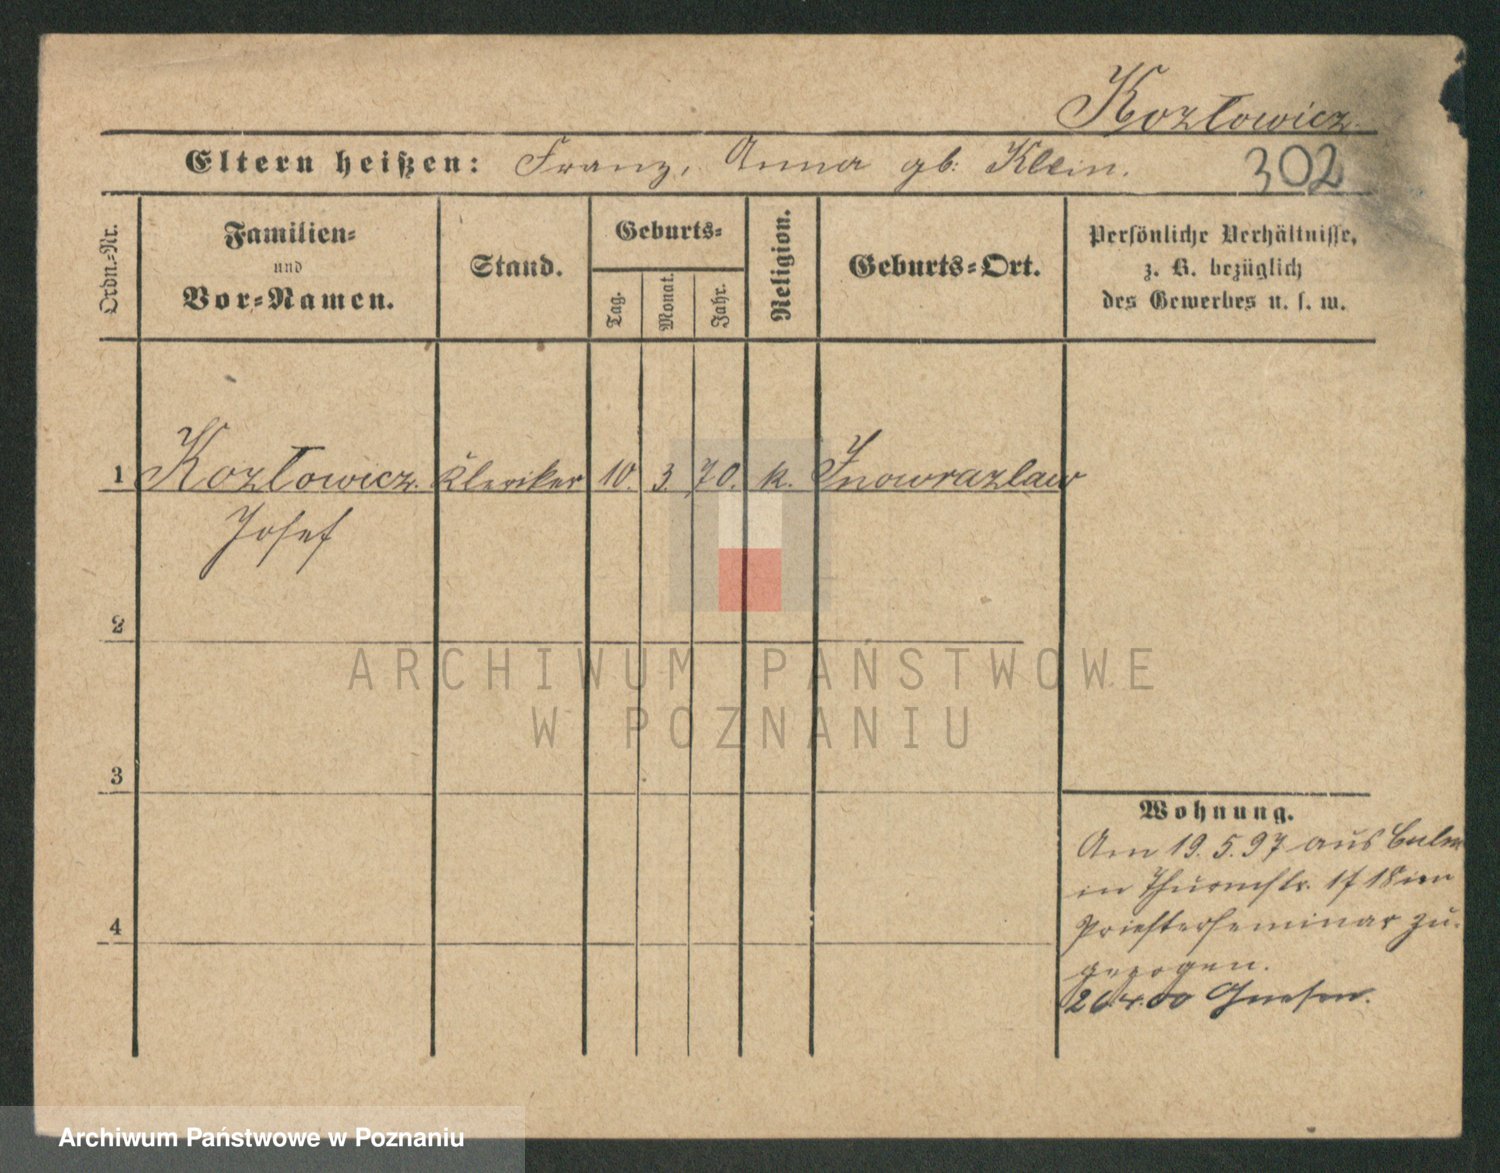 Kozłowicz.
Eltern heißen: Franz, Anna gb. Klein.
302
Ordn.-Nr.
Familien-
und
Vor-Namen.
Stand.
Geburts-
Tag.
Monat.
Jahr.
Religion.
Geburts-Ort.
Persönliche Verhältnisse,
z. B. bezüglich
des Gewerbes u. s. w.
1 Kozłowicz. Kleriker 10. 3. 70. k. Inowrazlaw
Josef
2
3
4
Wohnung.
Am 19.5.97 aus Culm
in Thurmstr. 17 18
Priesterseminar zu-
gezogen.
26.4.00 Gnesen.
ARCHIWUM PAŃSTWOWE
W POZNANIU
Archiwum Państwowe w Poznaniu